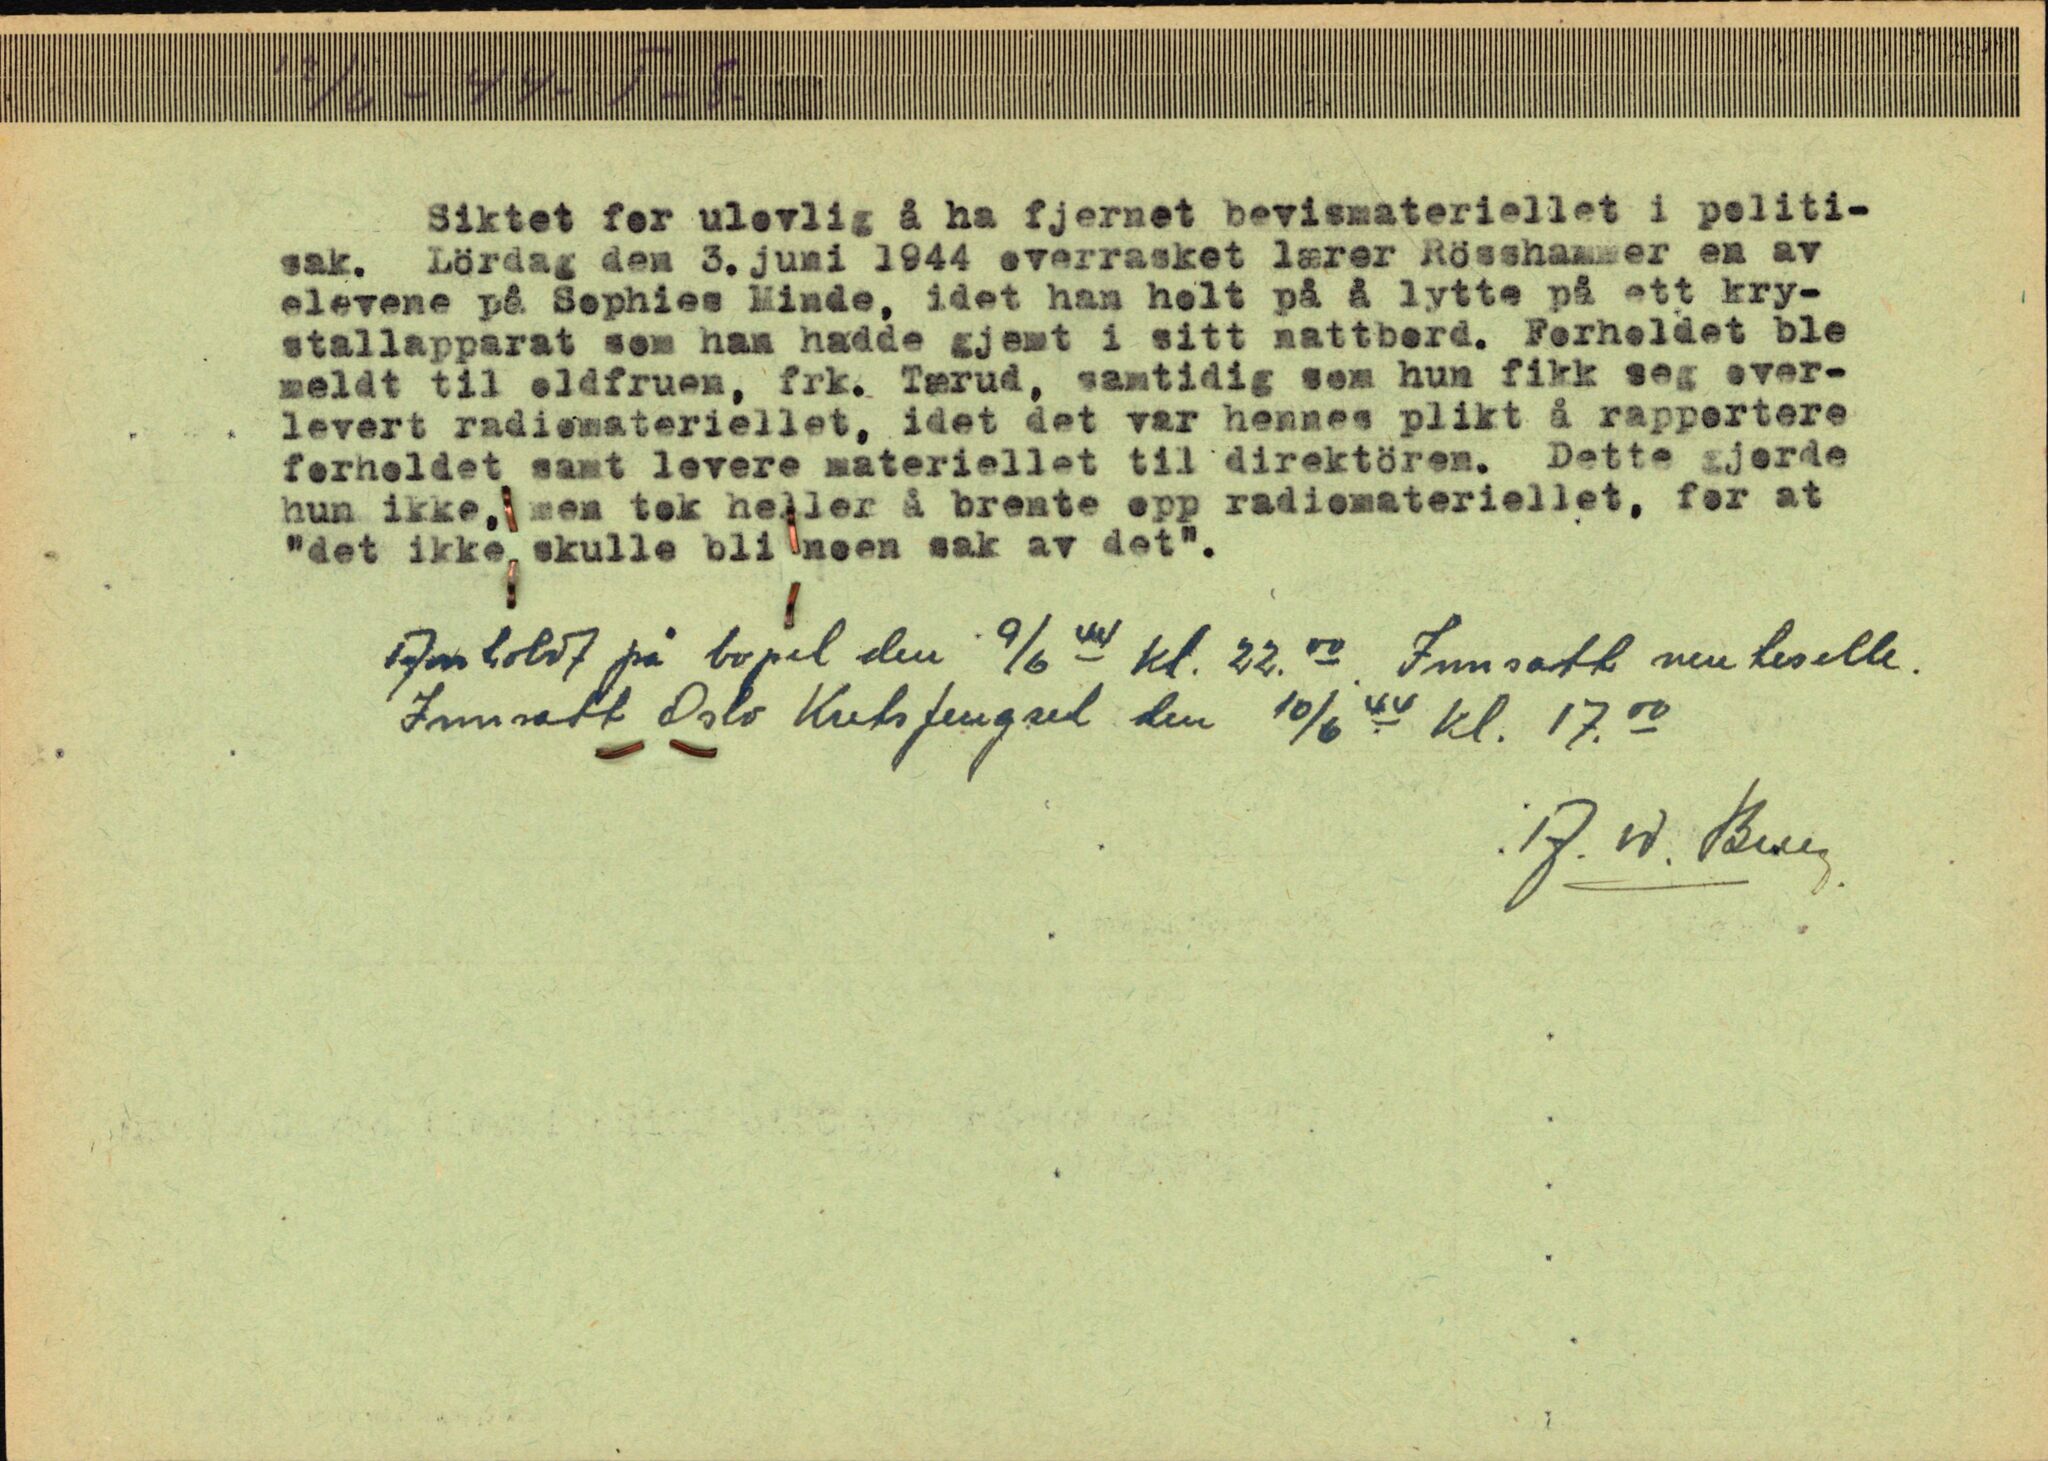 12/6 - 44 -
Siktet for ulovlig å ha fjernet bevismateriellet i politi-
sak. Lördag den 3.juni 1944 overrasket lærer Rösshammer en av
elevene på Sophies Minde, idet han holt på å lytte på ett kry-
stallapparat som han hadde gjemt i sitt nattbord. Forholdet ble
meldt til oldfruen, frk. Tærud, samtidig som hun fikk seg over-
levert radiomateriellet, idet det var hennes plikt å rapportere
forholdet samt levere materiellet til direktören. Dette gjorde
hun ikke, men tok heller å brente opp radiomateriellet, for at
"det ikke skulle bli noen sak av det".
Anholdt på bopel den 9/6 44 kl. 22.00. Innsatt venteselle.
Innsatt Oslo Kretsfengsel den 10/6 44 kl. 17.00
W.